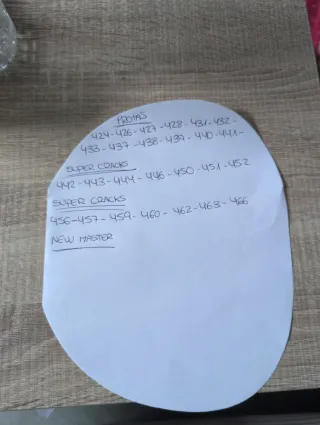 PROTAS
424-426-427-428-431-432-
433-437-438-439-440-441-
SUPER CRACKS
442-443-444-446-450-451-452
SUPER CRACKS
456-457-459-460-462-463-466
NEW MASTER